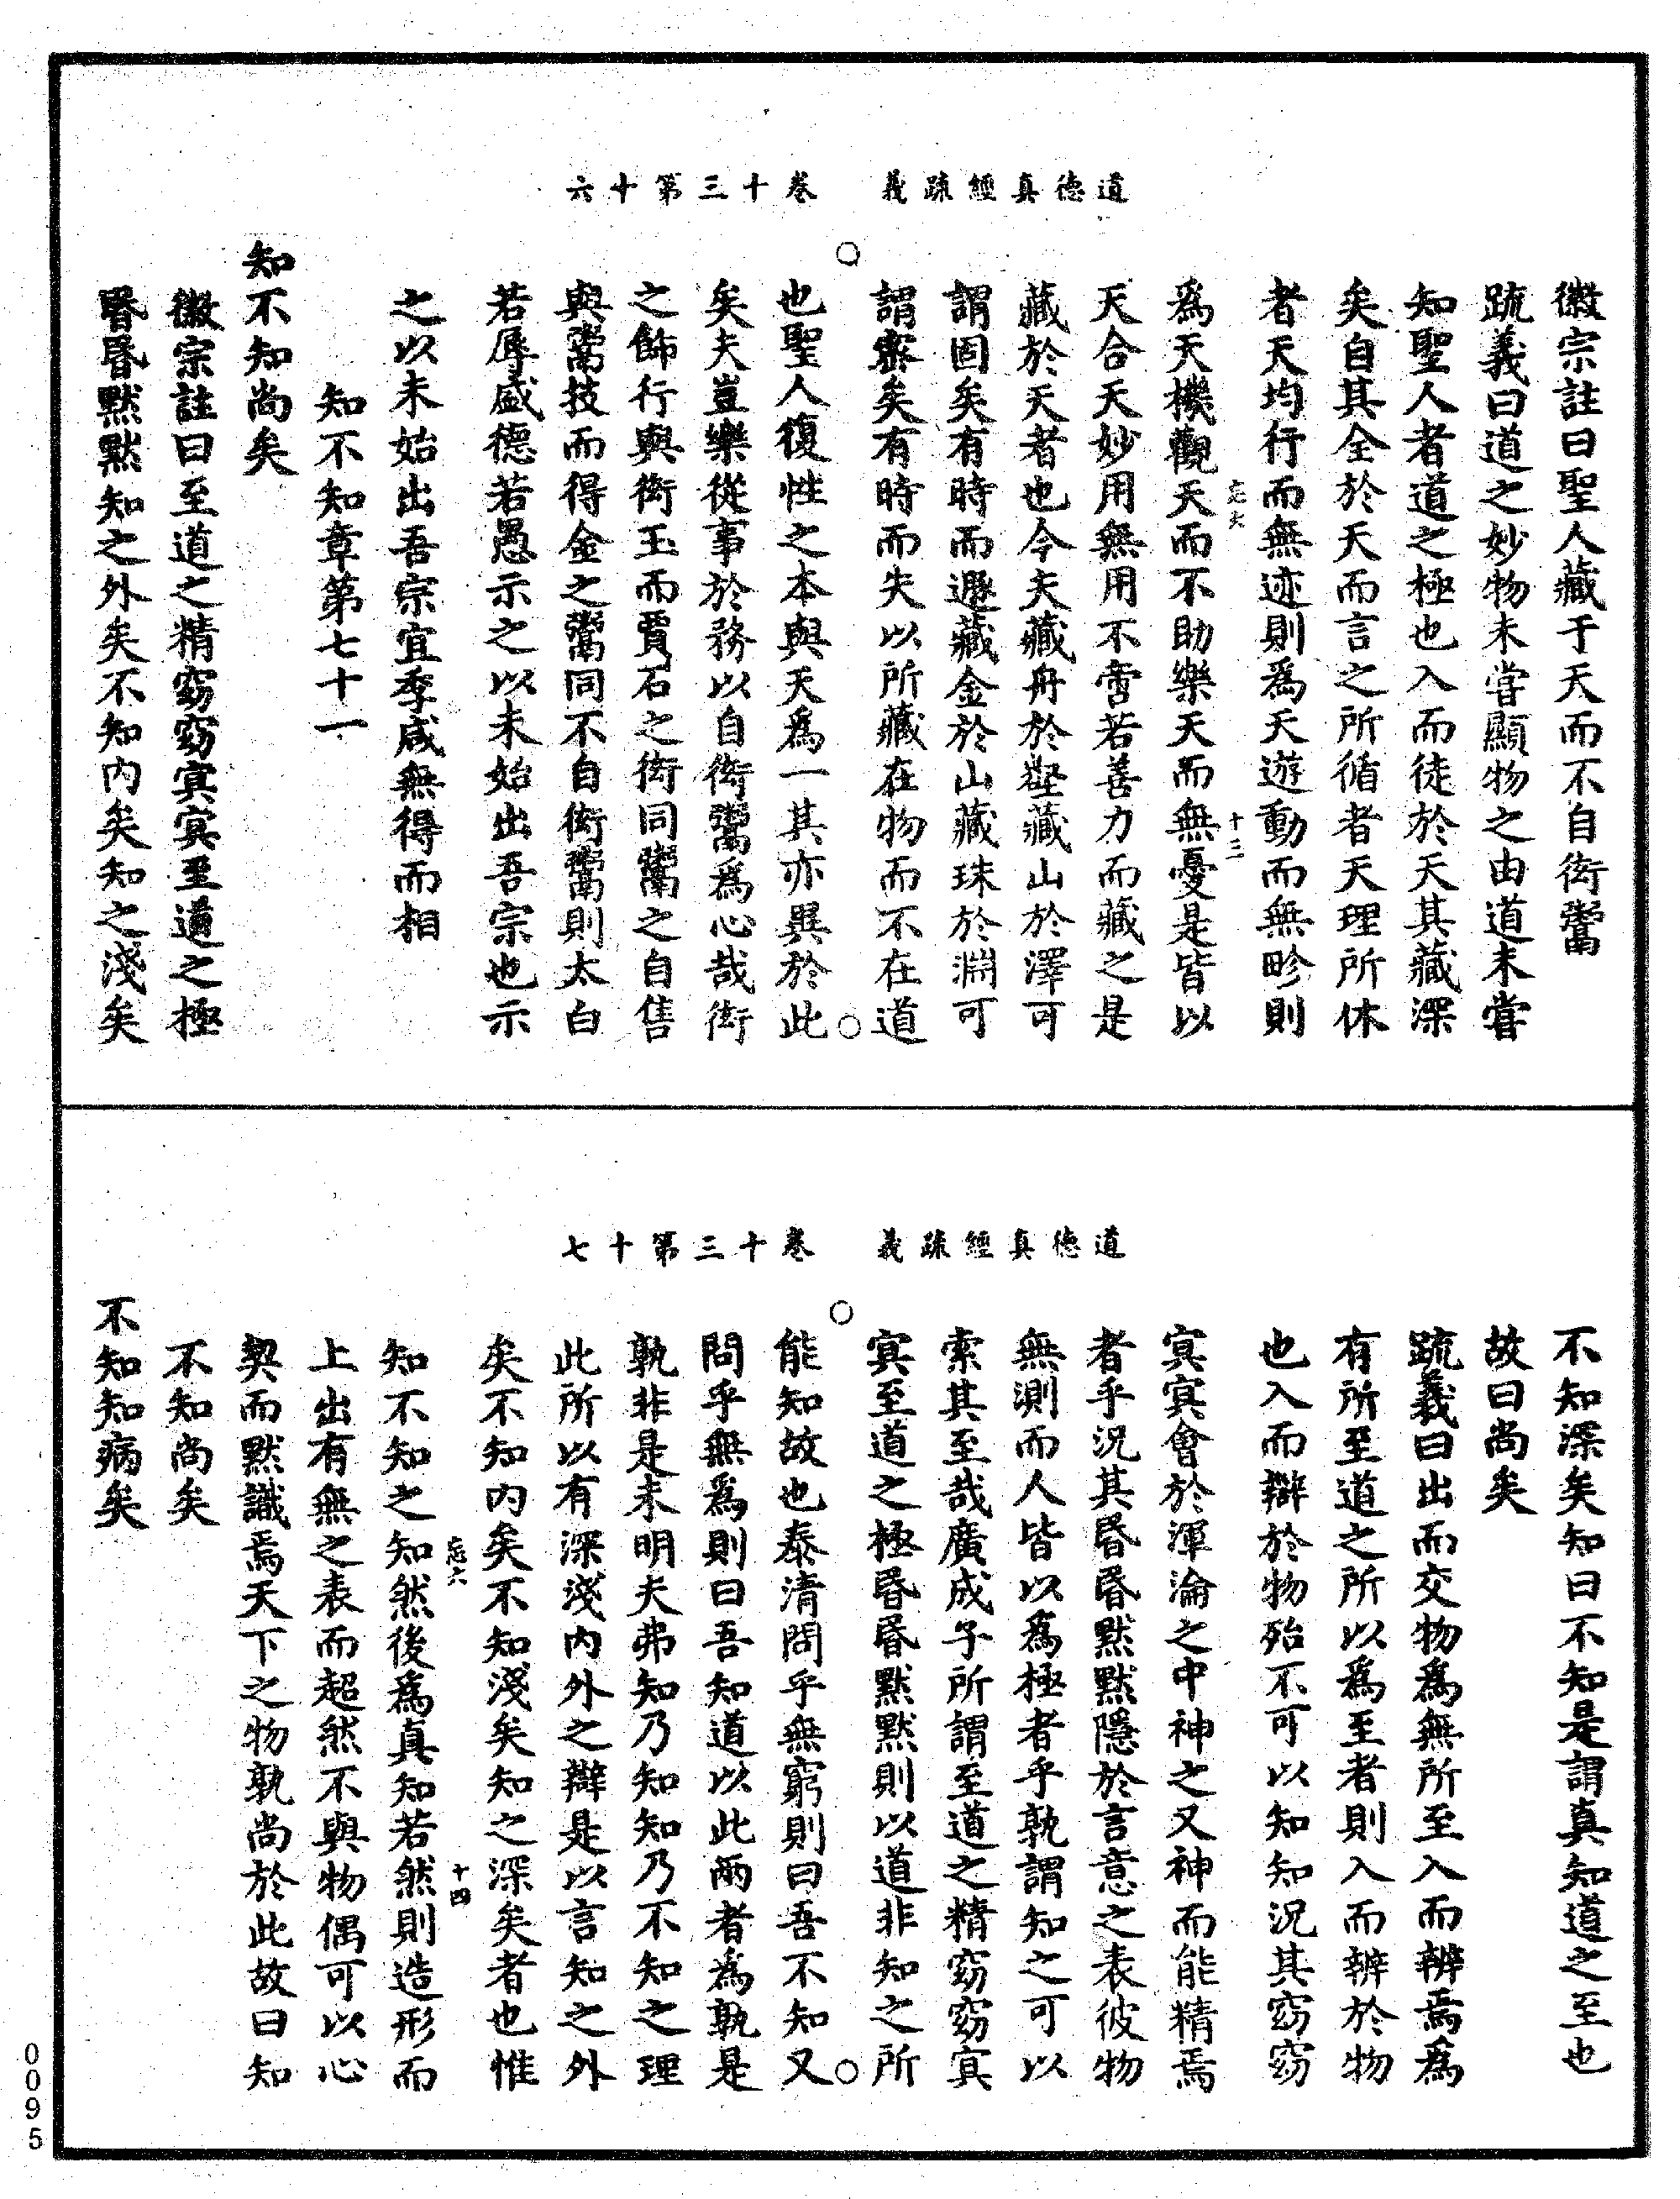 道德真經疏義　卷十三第十六
徽宗註曰聖人藏于天而不自衒鬻
疏義曰道之妙物未嘗顯物之由道未嘗
知聖人者道之極也入而徒於天其藏深
矣自其全於天而言之所循者天理所休
者天均行而無迹則為天遊動而無畛則
為天機觀天而不助樂天而無憂是皆以
忘六　十三
天合天妙用無用不啻若善刀而藏之是
藏於天者也今夫藏舟於壑藏山於澤可
謂固矣有時而遯藏金於山藏珠於淵可
謂密矣有時而失以所藏在物而不在道
也聖人復性之本與天為一其亦異於此
矣夫豈樂從事於務以自衒鬻為心哉衒
之飾行與衒玉而賈石之衒同鬻之自售
與鬻技而得金之鬻同不自衒鬻則太白
若辱盛德若愚示之以未始出吾宗也示
之以未始出吾宗宜季咸無得而相
知不知章第七十一
知不知尚矣
徽宗註曰至道之精窈窈冥冥至道之極
昏昏默默知之外矣不知內矣知之淺矣
道德真經疏義　卷十三第十七
不知深矣知曰不知是謂真知道之至也
故曰尚矣
疏義曰出而交物為無所至入而辨焉為
有所至道之所以為至者則入而辨於物
也入而辯於物殆不可以知知況其窈窈
冥冥會於渾淪之中神之又神而能精焉
者乎況其昏昏默默隱於言意之表彼物
無測而人皆以為極者乎孰謂知之可以
索其至哉廣成子所謂至道之精窈窈冥
冥至道之極昏昏默默則以道非知之所
能知故也泰清問乎無窮則曰吾不知又
問乎無為則曰吾知道以此兩者為孰是
孰非是未明夫弗知乃知知乃不知之理
此所以有深淺內外之辯是以言知之外
矣不知內矣不知淺矣知之深矣者也惟
忘六　十四
知不知之知然後為真知若然則造形而
上出有無之表而超然不與物偶可以心
契而默識焉天下之物孰尚於此故曰知
不知尚矣
不知知病矣
0095